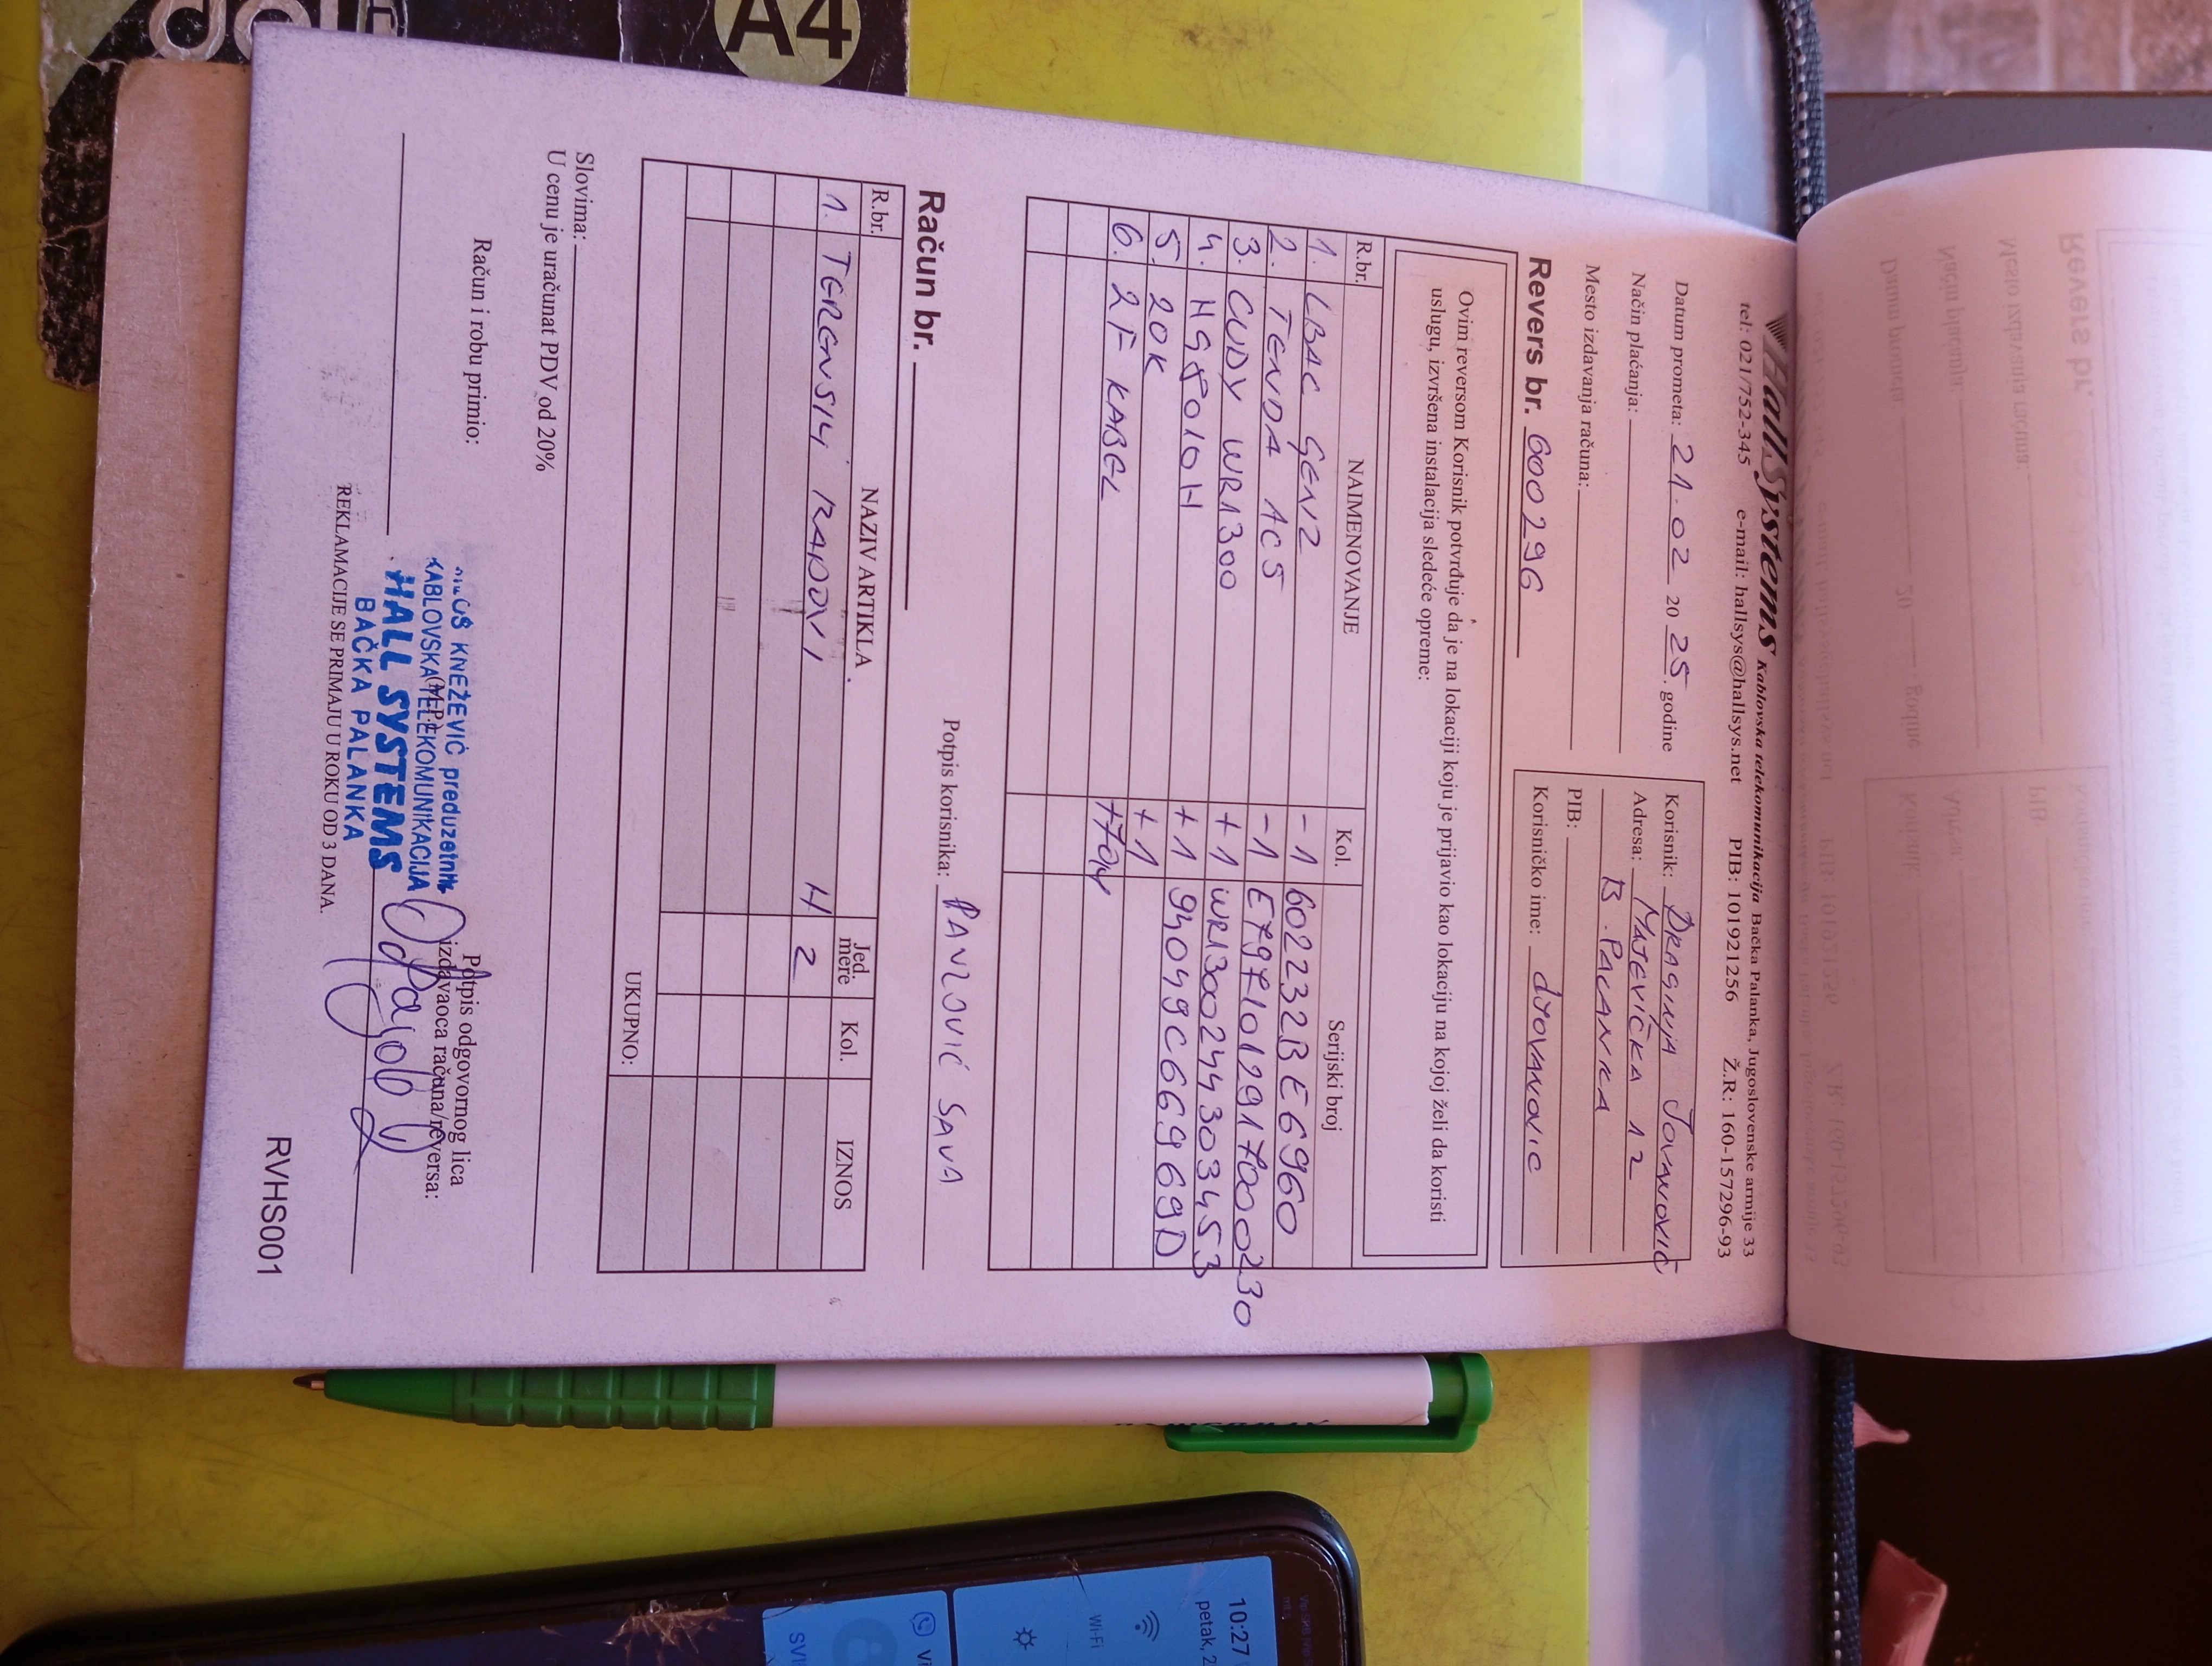 HallSystems Kablovska telekomunikacija Bačka Palanka, Jugoslovenske armije 33
tel: 021/752-345 e-mail: hallsys@hallsys.net PIB: 101921256 Ž.R: 160-157296-93
Datum prometa: 21.02 20 25. godine
Način plaćanja:
Mesto izdavanja računa:
Korisnik: DRAGINJA JOVANOVIĆ
Adresa: MATEVIČKA 12
B. PALANKA
PIB:
Korisničko ime: djovanovic
Revers br. 600296
Ovim reversom Korisnik potvrđuje da je na lokaciji koju je prijavio kao lokaciju na kojoj želi da koristi
uslugu, izvršena instalacija sledeće opreme:
R.br. NAIMENOVANJE Kol. Serijski broj
1. LBAC GEN2 -1 602232BE6960
2. TENDA AC5 -1 E7971012917000230
3. CUDY WR1300 +1 WR1300244303453
4. HG8010H +1 949049C669669D
5. 20K +1
6. 2F KABEL +70M
Račun br.
Potpis korisnika: PAVLOVIĆ SAVA
R.br. NAZIV ARTIKLA Jed. mere Kol. IZNOS
1. TERENSKI RADOVI H 2
UKUPNO:
Slovima:
U cenu je uračunat PDV od 20%
Račun i robu primio:
(M.P.)
Potpis odgovornog lica
izdavaoca računa/reversa:
KNEŽEVIĆ preduzetnik
KABLOVSKA TELEKOMUNIKACIJA
HALL SYSTEMS
BAČKA PALANKA
REKLAMACIJE SE PRIMAJU U ROKU OD 3 DANA.
RVHS001
A4
10:27
petak, 2
Wi-Fi
Vi